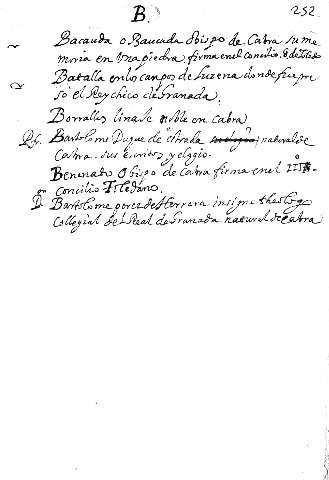 B.
252
Bacauda o Baucuda Obispo de Cabra su me
moria en una piedra firma en el concilio. 8. de Toledo
Batalla en los campos de Luzena donde fue pre
so el Rey chico de Granada.
Borrallos linaje noble en Cabra
Bartolome Duque de estrada natural de
Cabra. sus escritos y elogio.
Benenato Obispo de Cabra firma en el III°.
Concilio Toledano.
D. Bartolome perez de Herrera insigne theologo
Collegial del Real de Granada natural de Cabra